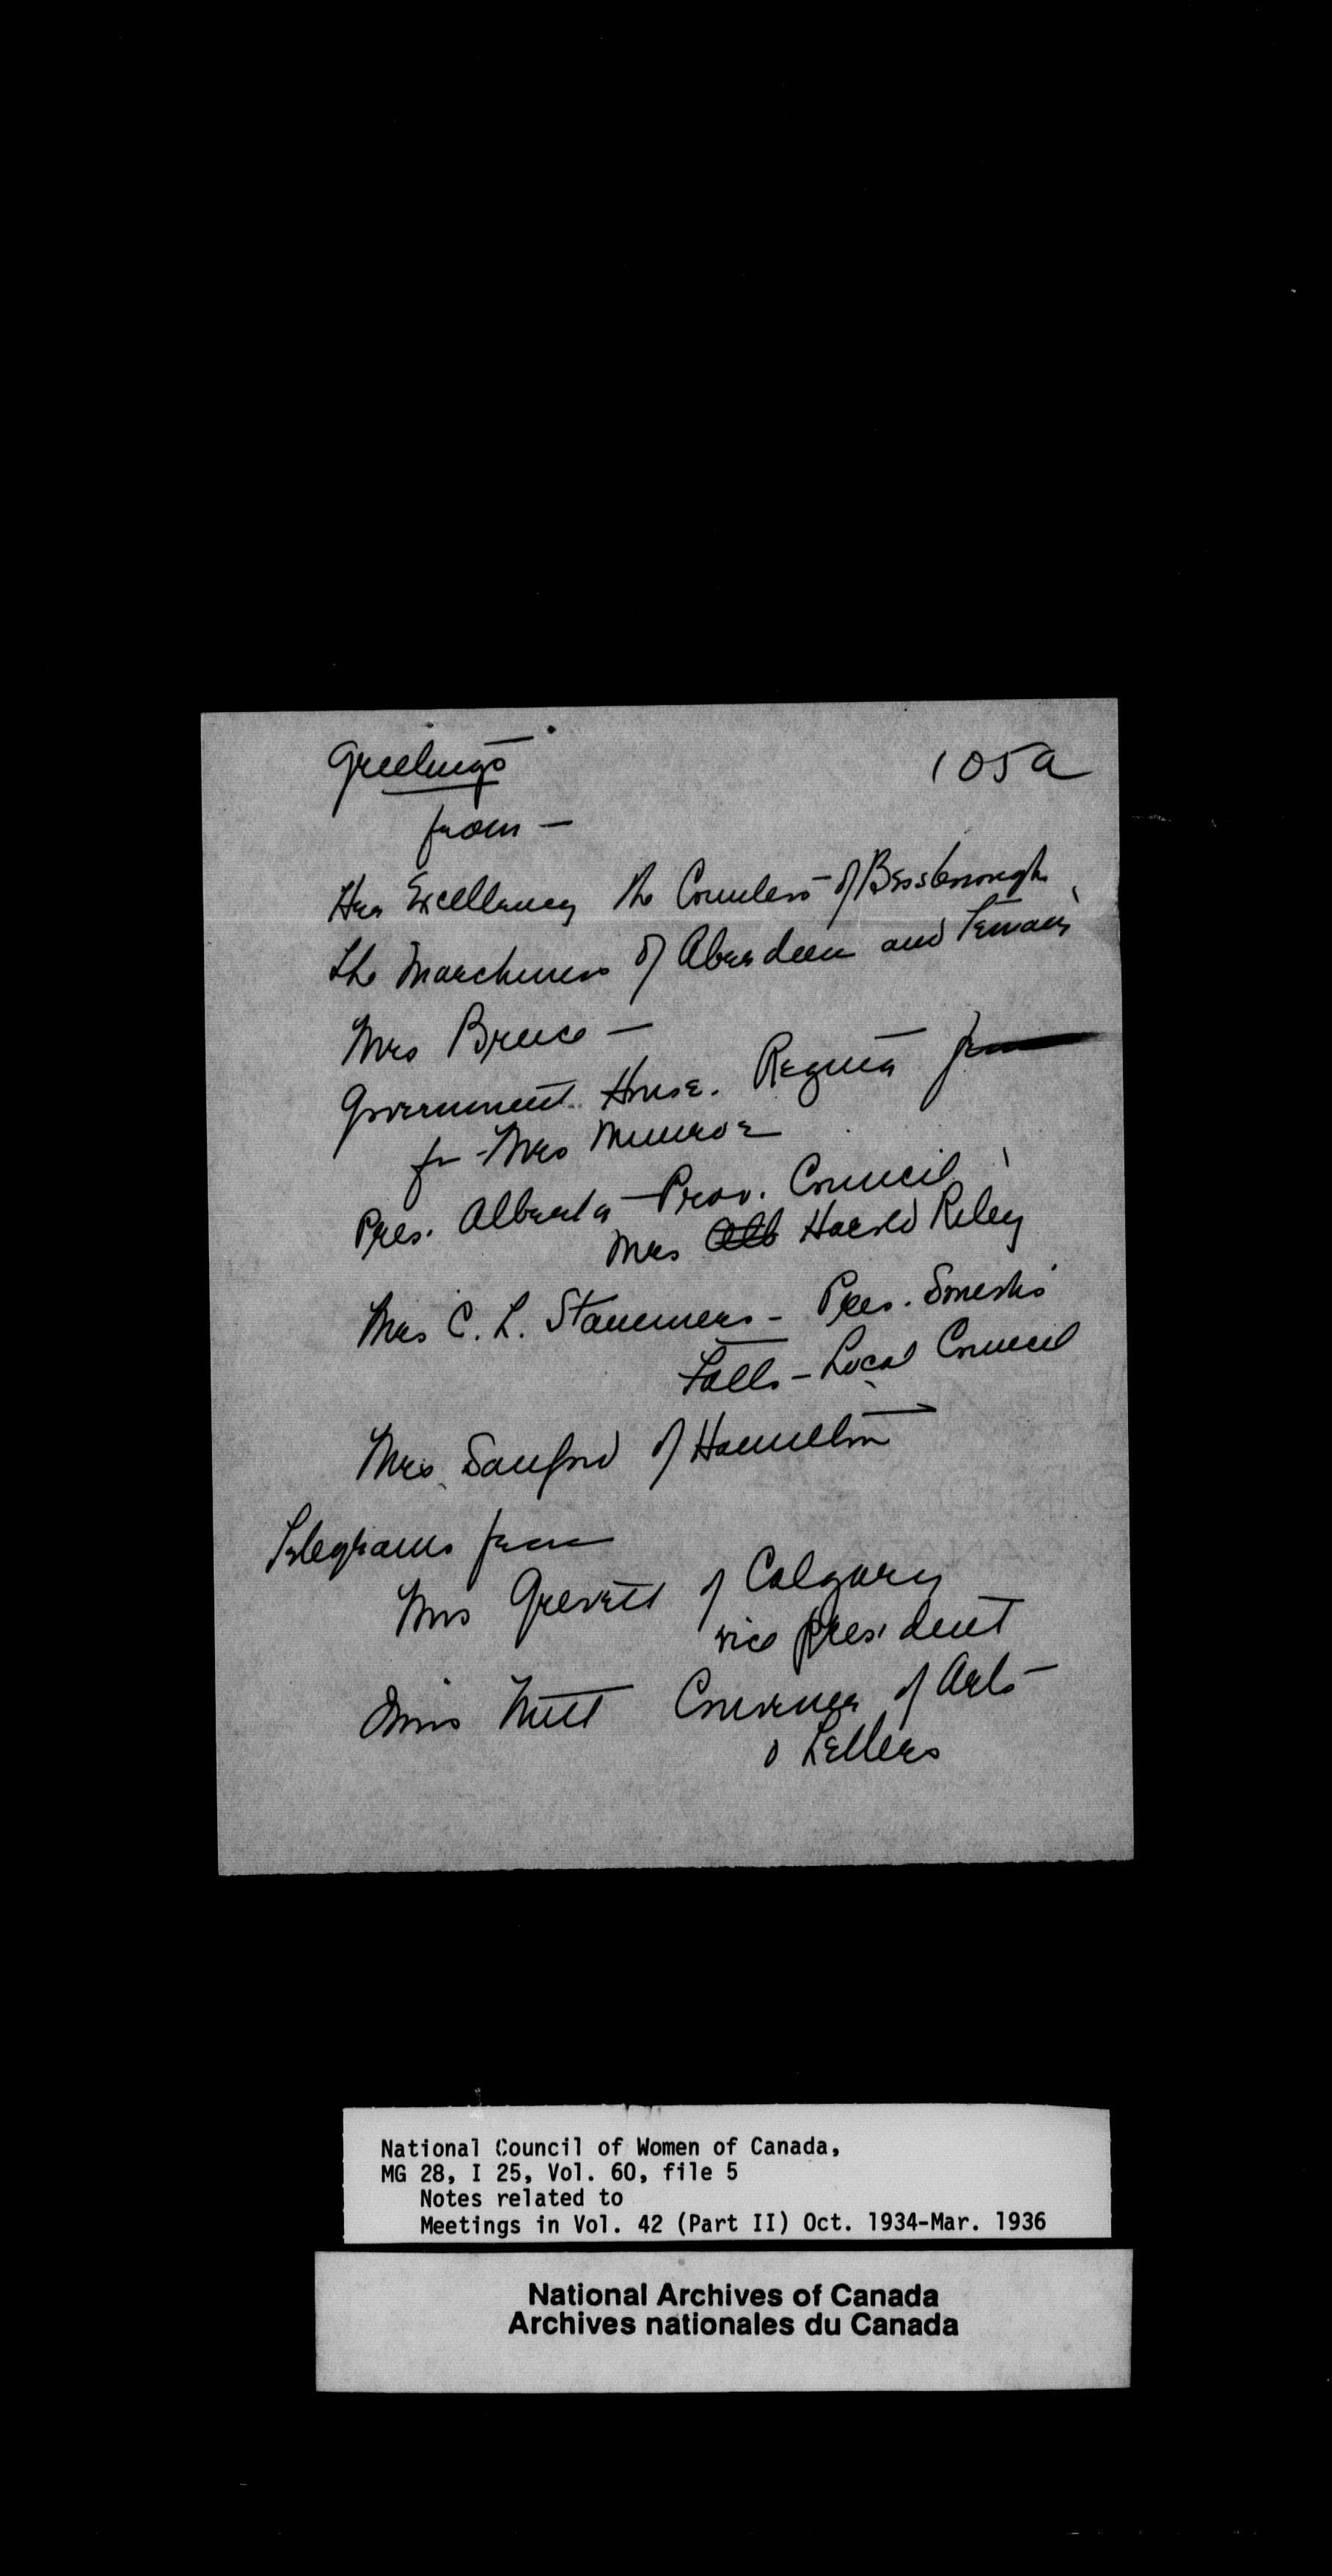 Greetings
105a
from —
Her Excellency the Countess of Bessborough
The Marchiness of Aberdeen and Temair
Mrs Bruce —
Government House. Regina from
for Mrs Munroe
Pres. Alberta Prov. Council
Mrs Alb Harold Riley
Mrs C. L. Stammers — Pres. Smiths
Falls — Local Council
Mrs Sanford of Hamilton
Telegrams from
Mrs Grevett of Calgary
vice president
Miss Nutt Convener of Arts
& Letters
National Council of Women of Canada,
MG 28, I 25, Vol. 60, file 5
Notes related to
Meetings in Vol. 42 (Part II) Oct. 1934-Mar. 1936
National Archives of Canada
Archives nationales du Canada